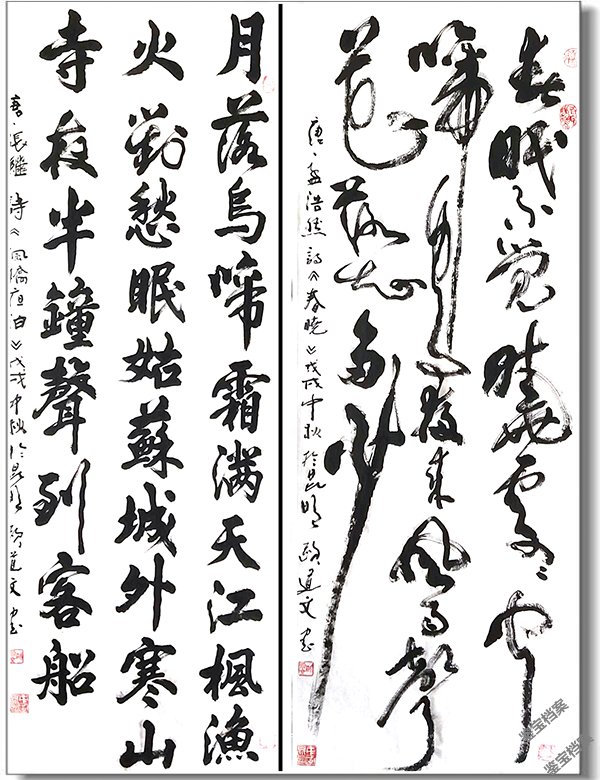 春眠不觉晓處〻闻
啼鸟夜来风雨声
花落知多少
唐·孟浩然诗《春晓》戊戌中秋於昆明 欧道文书
月落烏啼霜满天江楓漁
火對愁眠姑蘇城外寒山
寺夜半鐘聲到客船
唐·張繼诗《枫橋夜泊》戊戌中秋於昆明 欧道文书
鉴宝档案
鉴宝档案